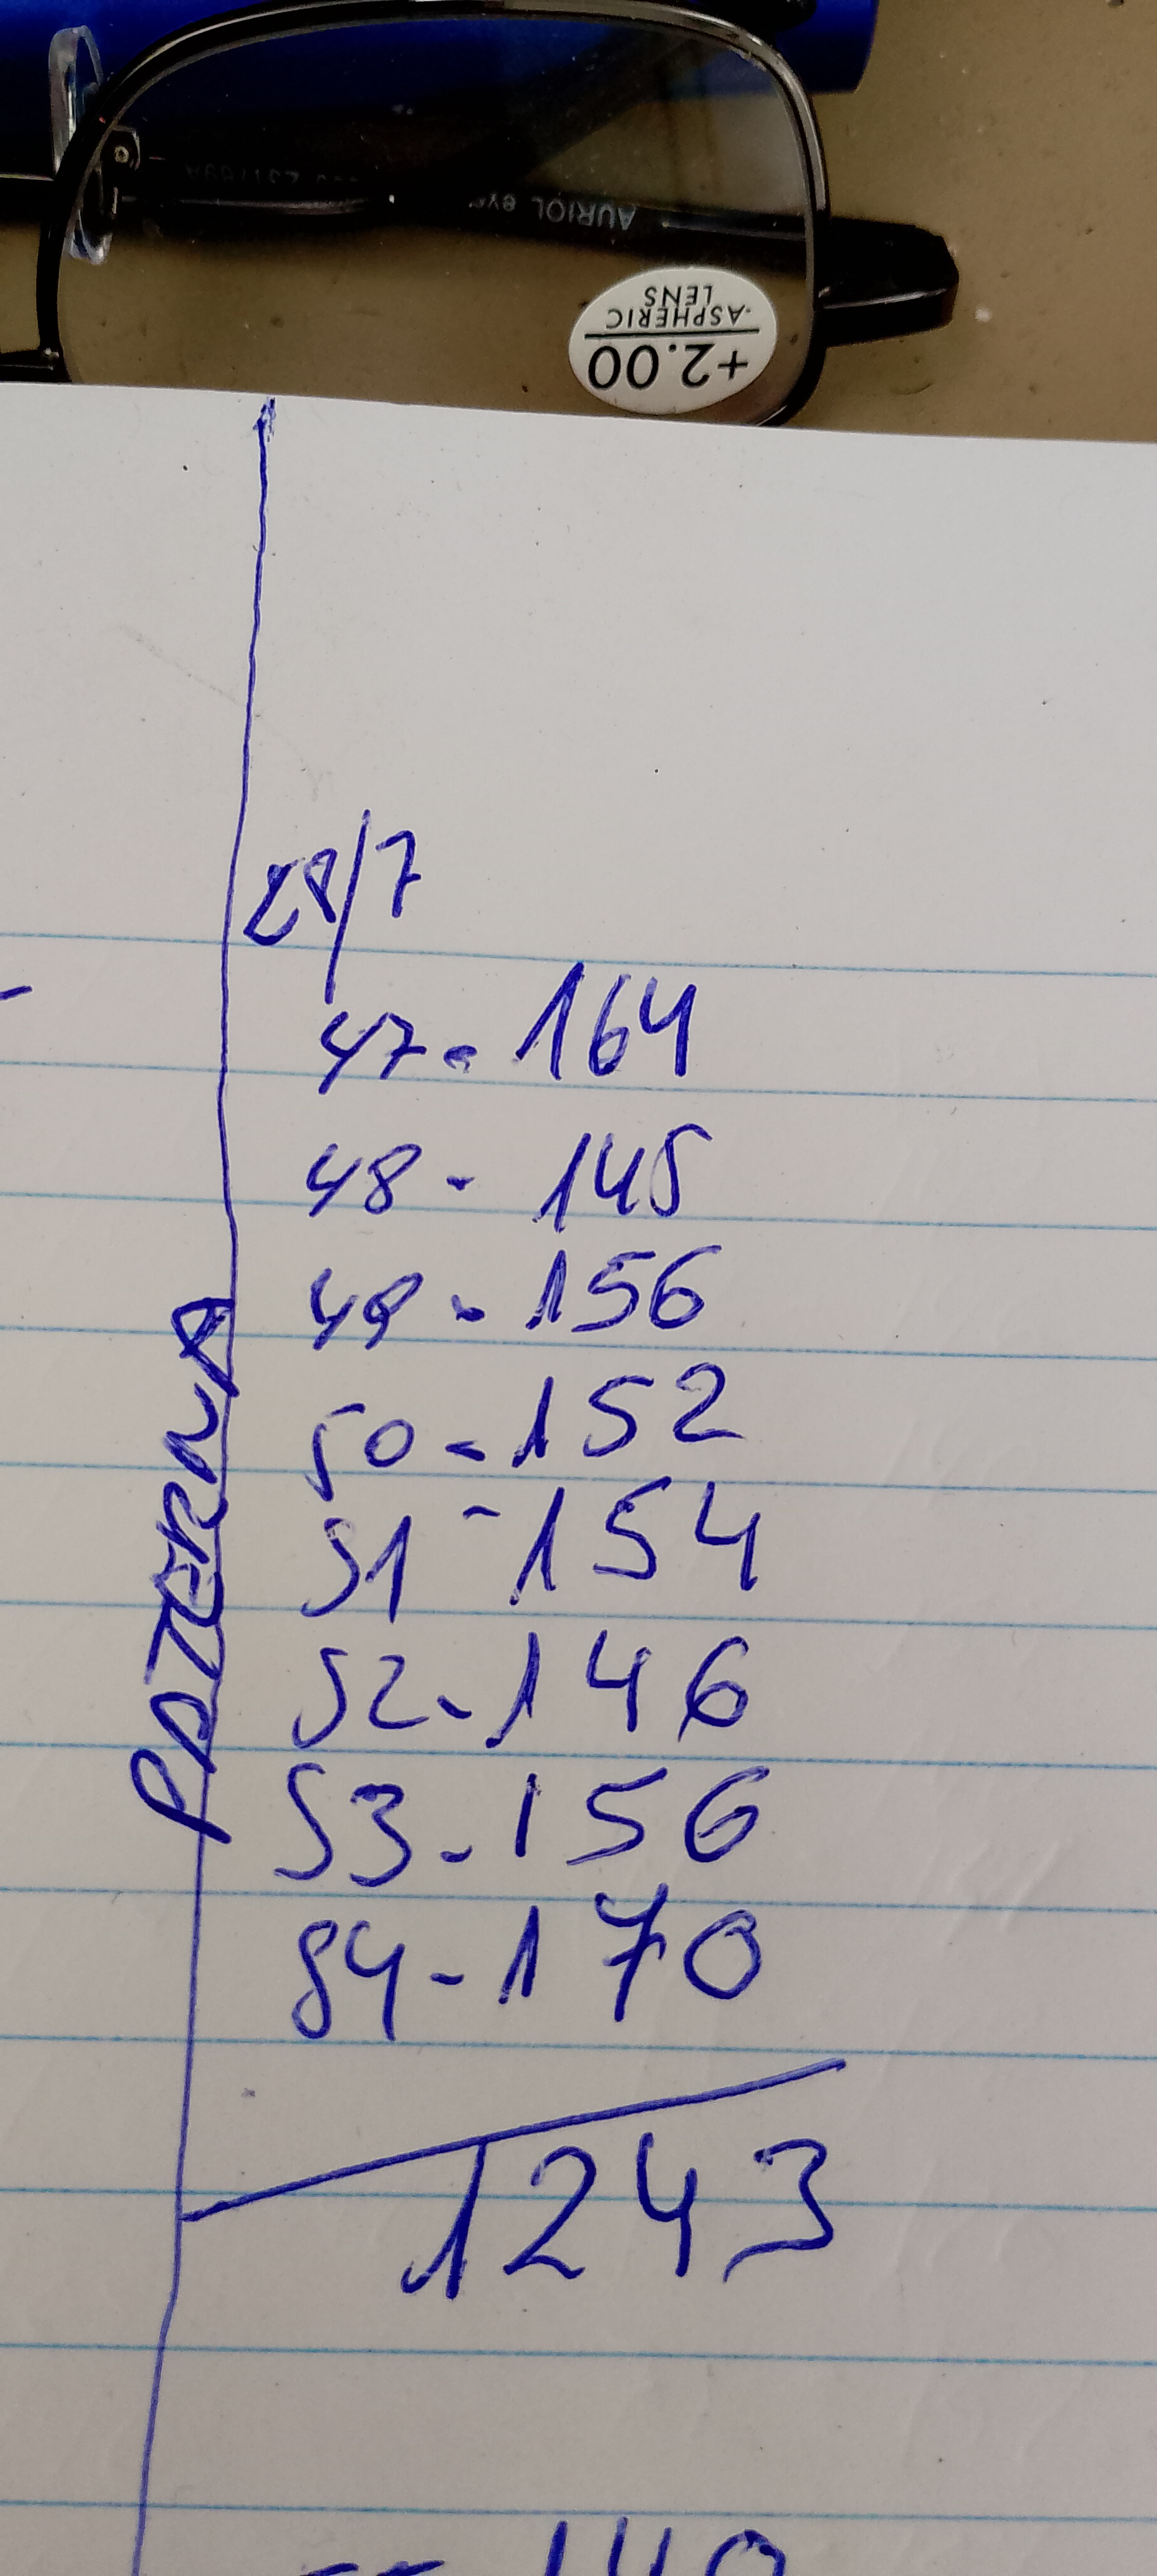 AURIOL eye
+2.00
ASPHERIC
LENS
28/7
47 - 164
48 - 145
49 - 156
50 - 152
51 - 154
52 - 146
53 - 156
54 - 170
1243
PATERNA